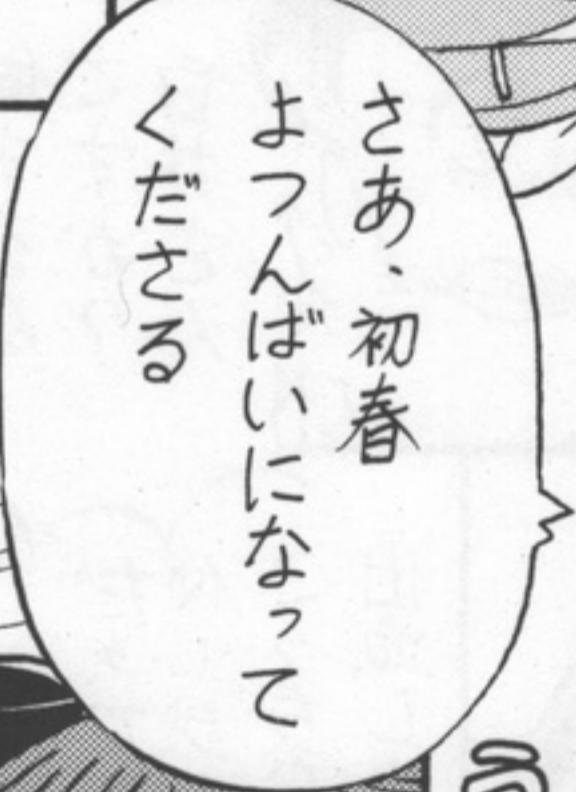 さあ、初春
よつんばいになって
くださる
う